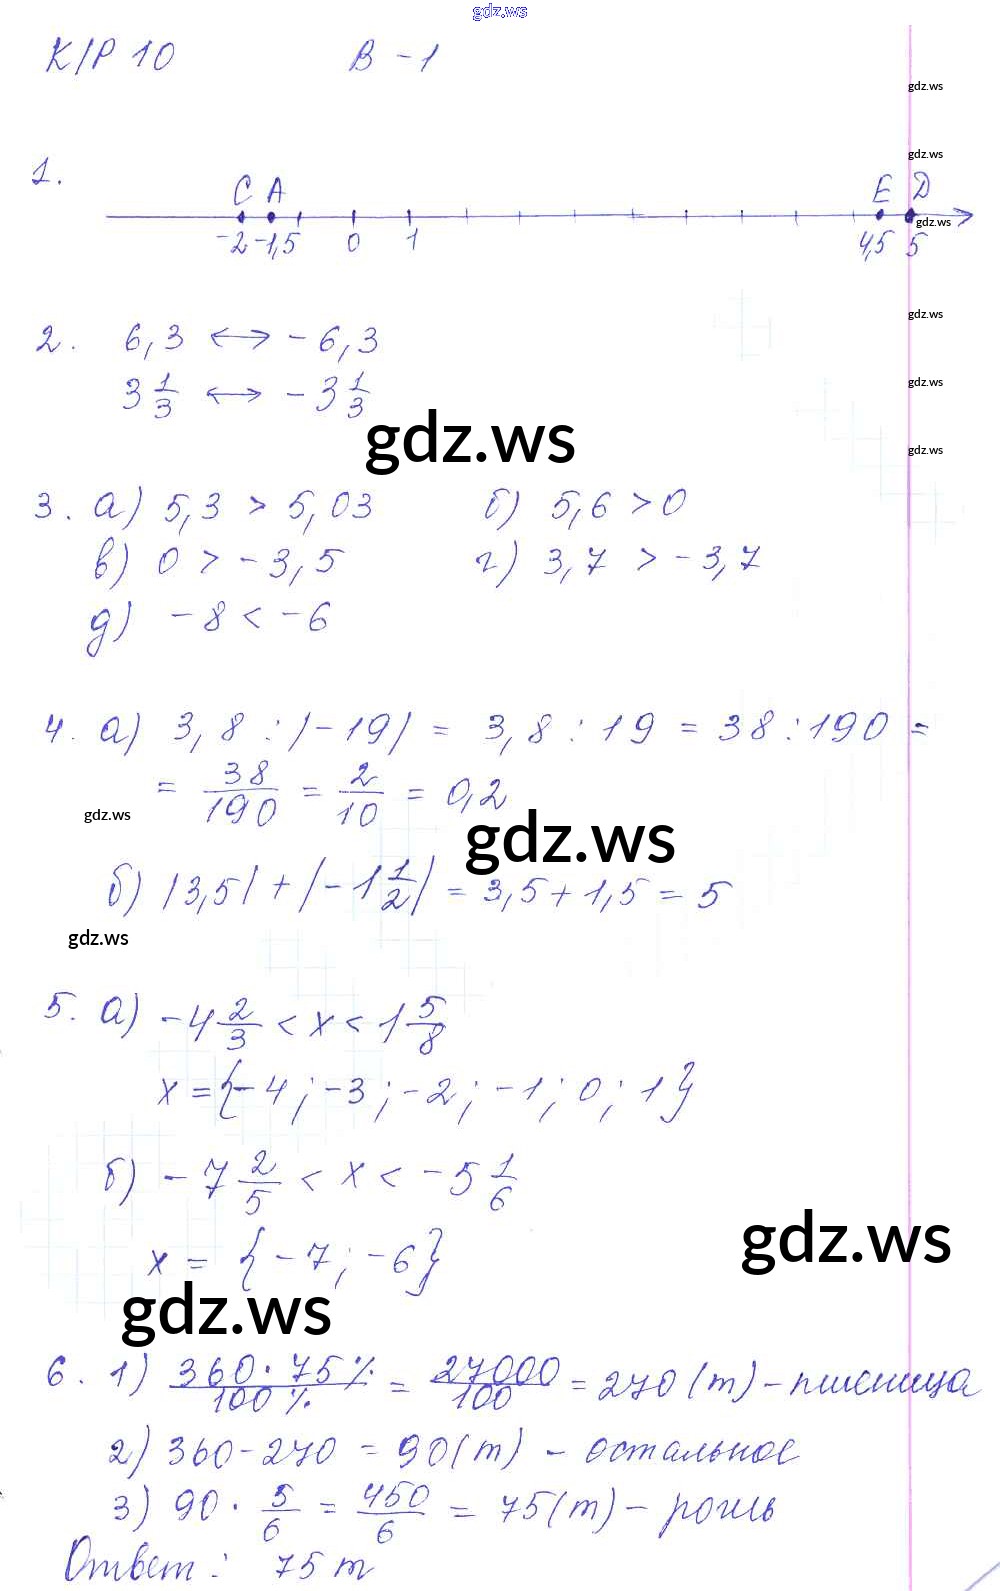 gdz.ws
К/Р 10 В - 1
gdz.ws
gdz.ws
1.
C A E D
gdz.ws
-2 -1,5 0 1 4,5 5
gdz.ws
2. 6,3 ↔ - 6,3
gdz.ws
3 1/3 ↔ - 3 1/3
gdz.ws
gdz.ws
3. а) 5,3 > 5,03 б) 5,6 > 0
в) 0 > - 3,5 г) 3,7 > - 3,7
д) - 8 < - 6
4. а) 3,8 : |-19| = 3,8 : 19 = 38 : 190 =
= 38/190 = 2/10 = 0,2
gdz.ws
gdz.ws
б) |3,5| + |-1 1/2| = 3,5 + 1,5 = 5
gdz.ws
5. а) -4 2/3 < x < 1 5/8
x = {-4; -3; -2; -1; 0; 1}
б) - 7 2/5 < x < - 5 1/6
gdz.ws
x = {-7; -6}
gdz.ws
6. 1) 360 · 75%/100% = 27000/100 = 270 (т) - пшеница
2) 360 - 270 = 90 (т) - остальное
3) 90 · 5/6 = 450/6 = 75 (т) - рожь
Ответ: 75 т